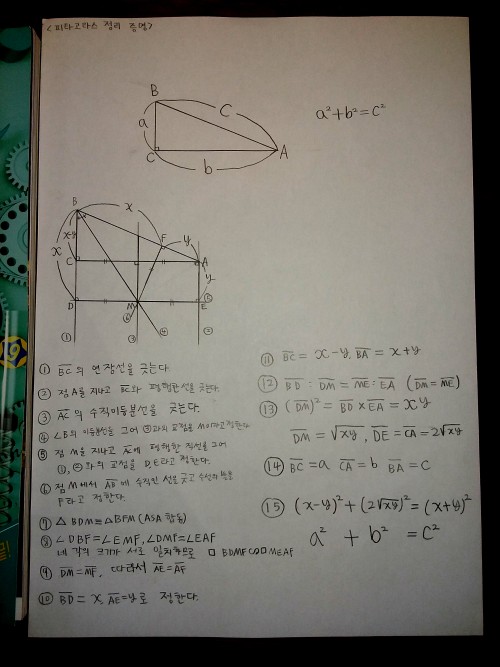 <피타고라스 정리 증명>
B
a
c
C
b
A
a²+b²=c²
B
x
x-y
x
F
y
C
A
y
D
M
E
⑤
①
⑥
③
④
②
① B̅C̅의 연장선을 긋는다.
② 점A를 지나고 B̅C̅와 평행한 선을 긋는다.
③ A̅C̅의 수직이등분선을 긋는다.
④ ∠B의 이등분선을 그어 ③과의 교점을 M이라고 정한다.
⑤ 점 M을 지나고 A̅C̅에 평행한 직선을 그어
①, ②와의 교점을 D,E라고 정한다.
⑥ 점M에서 A̅B̅에 수직인 선을 긋고 수선의 발을
F라고 정한다.
⑦ △BDM≡△BFM (ASA 합동)
⑧ ∠DBF=∠EMF, ∠DMF=∠EAF
네 각의 크기가 서로 일치하므로 □BDMF∽□MEAF
⑨ D̅M̅=M̅F̅, 따라서 A̅E̅=A̅F̅
⑩ B̅D̅=x, A̅E̅=y로 정한다.
⑪ B̅C̅=x-y, B̅A̅=x+y
⑫ B̅D̅:D̅M̅=M̅E̅:E̅A̅ (D̅M̅=M̅E̅)
⑬ (D̅M̅)²=B̅D̅×E̅A̅=xy
D̅M̅=√xy, D̅E̅=C̅A̅=2√xy
⑭ B̅C̅=a C̅A̅=b B̅A̅=c
⑮ (x-y)²+(2√xy)²=(x+y)²
a²+b²=c²